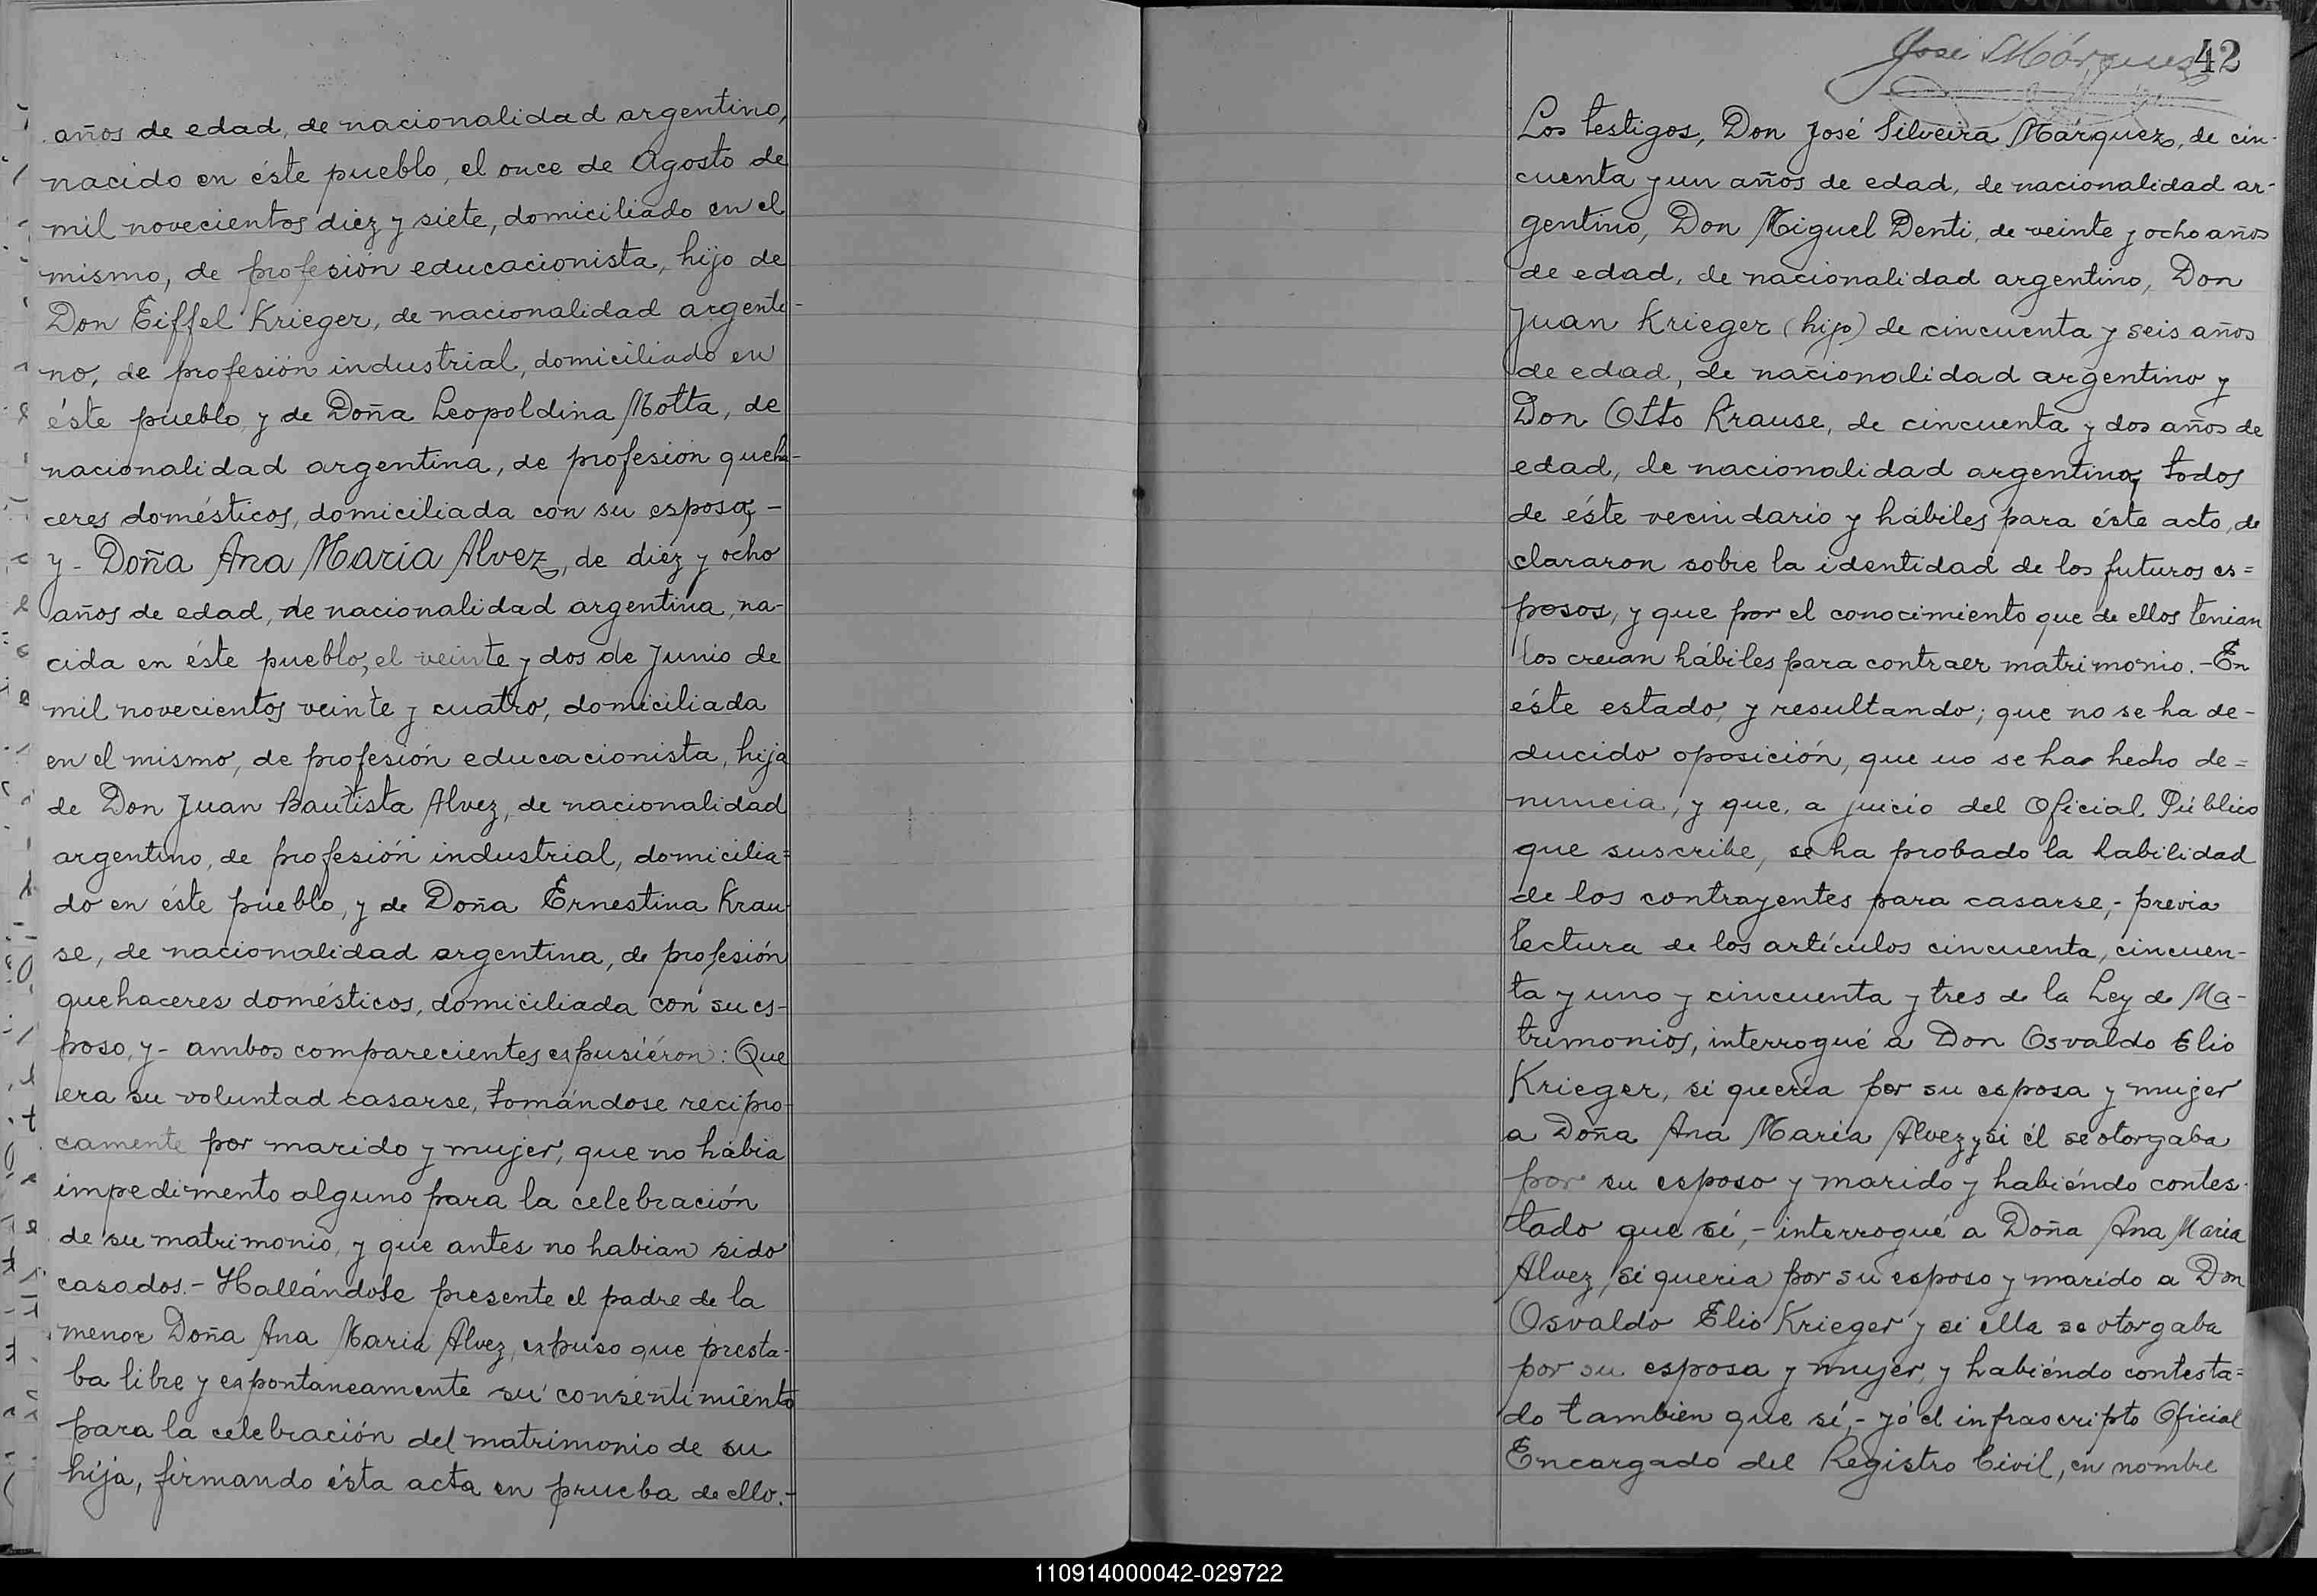 años de edad, de nacionalidad argentino,
nacido en éste pueblo, el once de Agosto de
mil novecientos diez y siete, domiciliado en el
mismo, de profesión educacionista, hijo de
Don Eiffel Krieger, de nacionalidad argenti-
no, de profesión industrial, domiciliado en
éste pueblo y de Doña Leopoldina Motta, de
nacionalidad argentina, de profesión queha-
ceres domésticos, domiciliada con su esposo, -
y - Doña Ana Maria Alvez, de diez y ocho
años de edad, de nacionalidad argentina, na-
cida en éste pueblo, el veinte y dos de Junio de
mil novecientos veinte y cuatro, domiciliada
en el mismo, de profesión educacionista, hija
de Don Juan Bautista Alvez, de nacionalidad
argentino, de profesión industrial, domicilia=
do en éste pueblo, y de Doña Ernestina Krau-
se, de nacionalidad argentina, de profesión
quehaceres domésticos, domiciliada con su es-
poso, y - ambos comparecientes expusiéron: Que
era su voluntad casarse, tomándose recipro-
camente por marido y mujer, que no habia
impedimento alguno para la celebración
de su matrimonio, y que antes no habian sido
casados. - Hallándose presente el padre de la
menor Doña Ana Maria Alvez, expuso que presta-
ba libre y espontaneamente su consentimiento
para la celebración del matrimonio de su
hija, firmando ésta acta en prueba de ello. -
José Márquez
42
Los testigos, Don José Silveira Márquez, de cin-
cuenta y un años de edad, de nacionalidad ar-
gentino, Don Miguel Denti, de veinte y ocho años
de edad, de nacionalidad argentino, Don
Juan Krieger (hijo) de cincuenta y seis años
de edad, de nacionalidad argentino y
Don Otto Krause, de cincuenta y dos años de
edad, de nacionalidad argentino, todos
de éste vecindario y hábiles para éste acto, de
clararon sobre la identidad de los futuros es=
posos, y que por el conocimiento que de ellos tenian
los creian hábiles para contraer matrimonio. - En
éste estado, y resultando; que no se ha de-
ducido oposición, que no se ha hecho de=
nuncia, y que, a juicio del Oficial Público
que suscribe, se ha probado la habilidad
de los contrayentes para casarse, - previa
lectura de los artículos cincuenta, cincuen-
ta y uno y cincuenta y tres de la Ley de Ma-
trimonios, interrogué a Don Osvaldo Elio
Krieger, si queria por su esposa y mujer
a Doña Ana Maria Alvez y si él se otorgaba
por su esposo y marido y habiéndo contes-
tado que sí, - interrogué a Doña Ana Maria
Alvez, si queria por su esposo y marido a Don
Osvaldo Elio Krieger y si ella se otorgaba
por su esposa y mujer, y habiéndo contesta=
do tambien que sí, - yó el infrascripto Oficial
Encargado del Registro Civil, en nombre
110914000042-029722